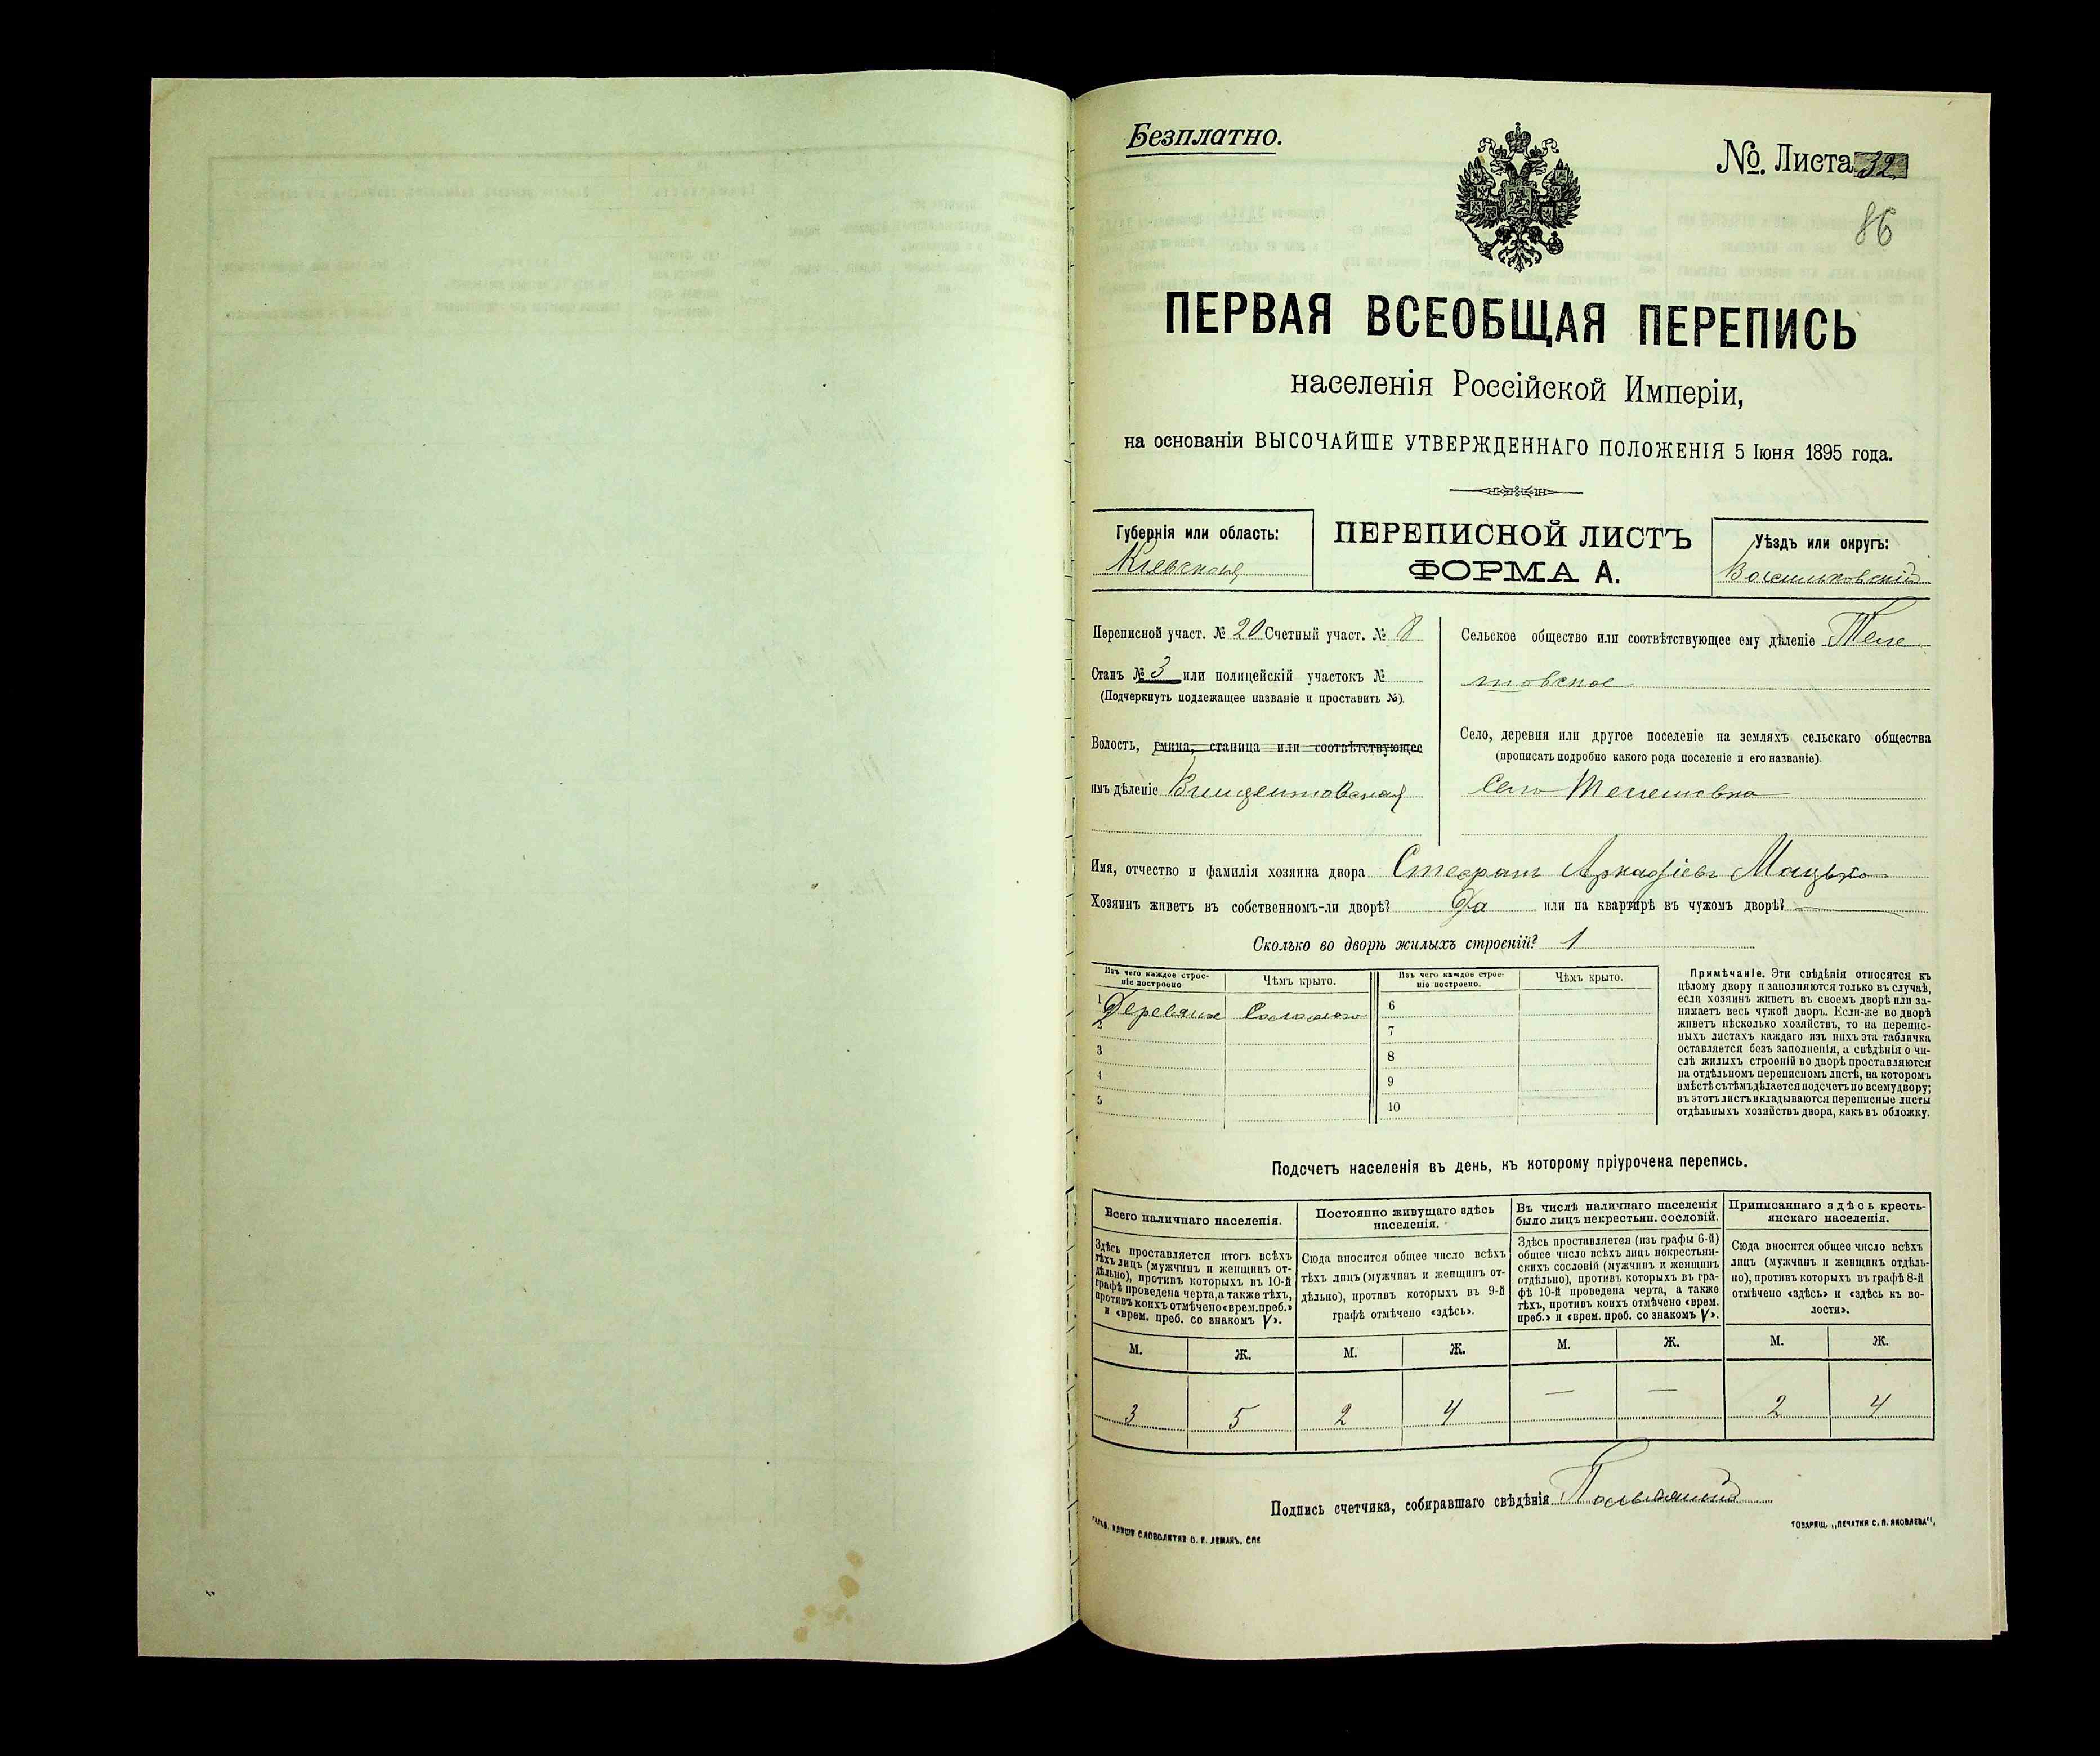 Безплатно.
№. Листа 32
86
ПЕРВАЯ ВСЕОБЩАЯ ПЕРЕПИСЬ
населенія Россійской Имперіи,
на основаніи ВЫСОЧАЙШЕ УТВЕРЖДЕННАГО ПОЛОЖЕНІЯ 5 Іюня 1895 года.
Губернія или область:
Кіевская
ПЕРЕПИСНОЙ ЛИСТЪ
ФОРМА А.
Уѣздъ или округъ:
Васильковскій
Переписной участ. № 20 Счетный участ. № 8
Станъ № 3 или полицейскій участокъ №
(Подчеркнуть подлежащее названіе и проставить №).
Волость, гмина, станица или соотвѣтствующее
имъ дѣленіе Винцентовская
Сельское общество или соотвѣтствующее ему дѣленіе Теле
шовское
Село, деревня или другое поселеніе на земляхъ сельскаго общества
(прописать подробно какого рода поселеніе и его названіе).
Село Телешовка
Имя, отчество и фамилія хозяина двора Стефанъ Аркадіевъ Мацько
Хозяинъ живетъ въ собственномъ-ли дворѣ? Да или на квартирѣ въ чужомъ дворѣ?
Сколько во дворѣ жилыхъ строеній? 1
Изъ чего каждое строе-
ніе построено
Чѣмъ крыто.
Изъ чего каждое строе-
ніе построено.
Чѣмъ крыто.
1 Деревяное Соломою 6
2 7
3 8
4 9
5 10
Примѣчаніе. Эти свѣдѣнія относятся къ
цѣлому двору и заполняются только въ случаѣ,
если хозяинъ живетъ въ своемъ дворѣ или за-
нимаетъ весь чужой дворъ. Если-же во дворѣ
живетъ нѣсколько хозяйствъ, то на перепис-
ныхъ листахъ каждаго изъ нихъ эта табличка
оставляется безъ заполненія, а свѣдѣнія о чи-
слѣ жилыхъ строеній во дворѣ проставляются
на отдѣльномъ переписномъ листѣ, на которомъ
вмѣстѣ съ тѣмъ дѣлается подсчетъ по всему двору;
въ этотъ листъ вкладываются переписные листы
отдѣльныхъ хозяйствъ двора, какъ въ обложку.
Подсчетъ населенія въ день, къ которому пріурочена перепись.
Всего наличнаго населенія.
Здѣсь проставляется итогъ всѣхъ
тѣхъ лицъ (мужчинъ и женщинъ от-
дѣльно), противъ которыхъ въ 10-й
графѣ проведена черта, а также тѣхъ,
противъ коихъ отмѣчено «врем. преб.»
и «врем. преб. со знакомъ V».
Постоянно живущаго здѣсь
населенія.
Сюда вносится общее число всѣхъ
тѣхъ лицъ (мужчинъ и женщинъ от-
дѣльно), противъ которыхъ въ 9-й
графѣ отмѣчено «здѣсь».
Въ числѣ наличнаго населенія
было лицъ некрестьян. сословій.
Здѣсь проставляется (изъ графы 6-й)
общее число всѣхъ лицъ некрестьян-
скихъ сословій (мужчинъ и женщинъ
отдѣльно), противъ которыхъ въ гра-
фѣ 10-й проведена черта, а также
тѣхъ, противъ коихъ отмѣчено «врем.
преб.» и «врем. преб. со знакомъ V».
Приписаннаго здѣсь кресть-
янскаго населенія.
Сюда вносится общее число всѣхъ
лицъ (мужчинъ и женщинъ отдѣль-
но), противъ которыхъ въ графѣ 8-й
отмѣчено «здѣсь» и «здѣсь къ во-
лости».
М. Ж. М. Ж. М. Ж. М. Ж.
3 5 2 4 — — 2 4
Подпись счетчика, собиравшаго свѣдѣнія
СЛОВОЛИТНИ О. И. ЛЕМАНЪ. СПБ
ТОВАРИЩ. „ПЕЧАТНЯ С. П. ЯКОВЛЕВА“.